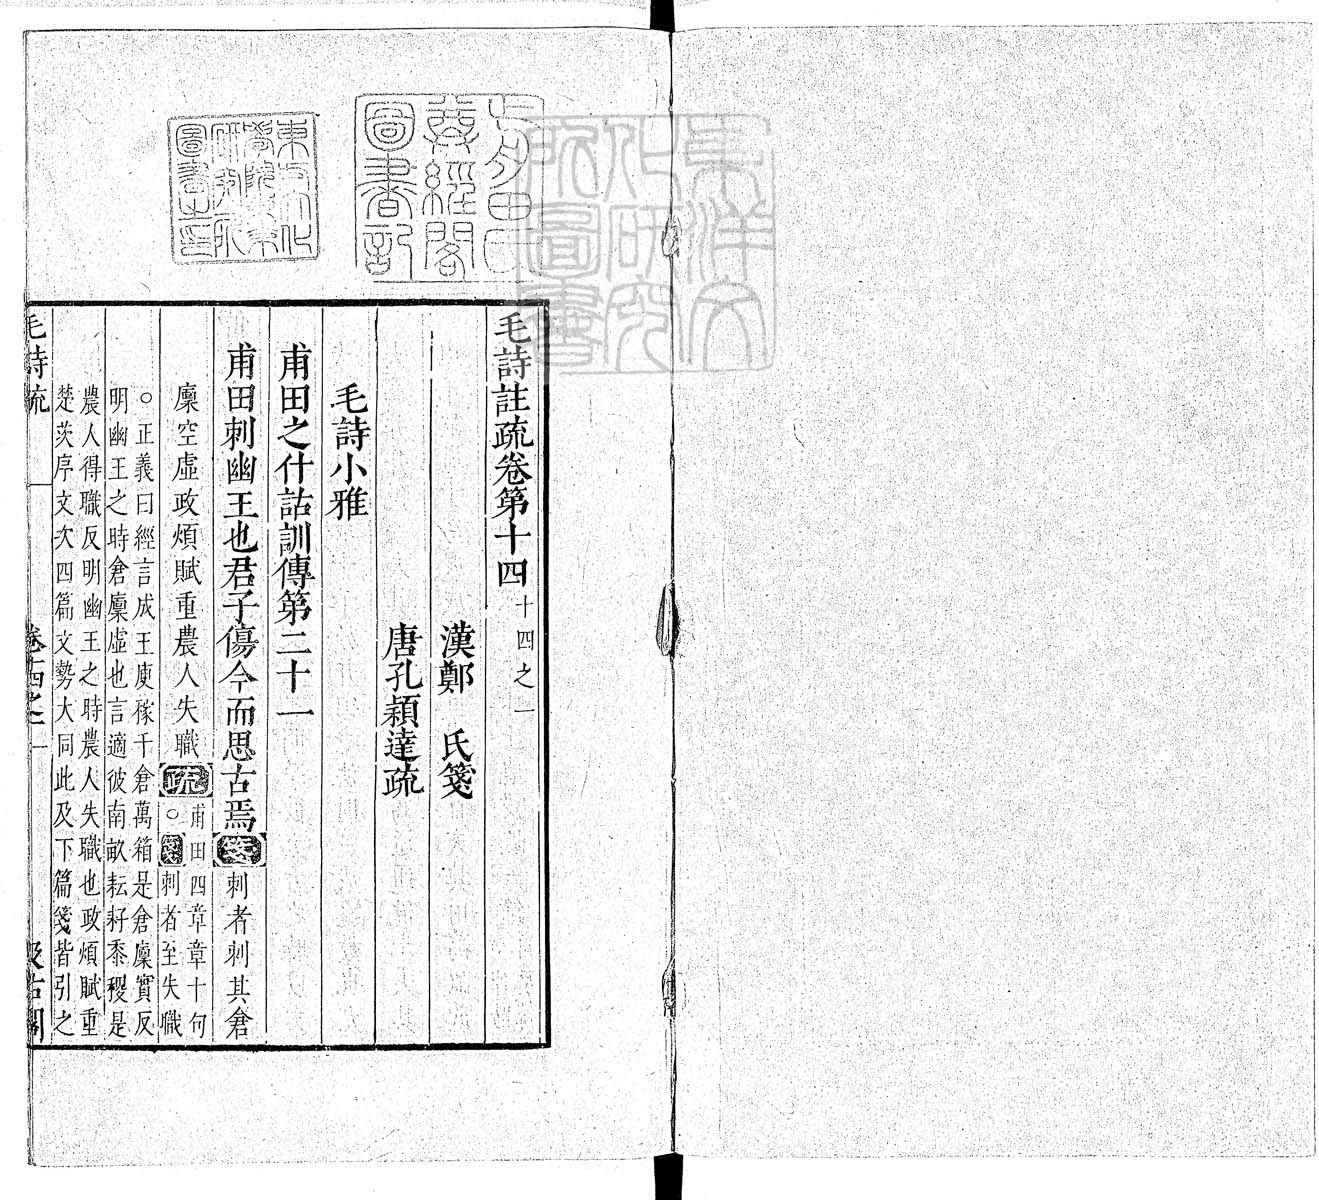 毛詩註疏卷第十四十四之一
漢鄭氏箋
唐孔穎達疏
毛詩小雅
甫田之什詁訓傳第二十一
甫田刺幽王也君子傷今而思古焉箋刺者刺其倉
廩空虛政煩賦重農人失職疏甫田四章章十句
○箋刺者至失職
○正義曰經言成王庾稼千倉萬箱是倉廩實反
明幽王之時倉廩虛也言適彼南畝耘耔黍稷是
農人得職反明幽王之時農人失職也政煩賦重
楚茨序文次四篇文勢大同此及下篇箋皆引之
毛詩疏
卷十四之一
一
汲古閣
東洋文
化研究
所圖書
尊經閣
圖書記
東方文化
學院東
研究所
圖書之印